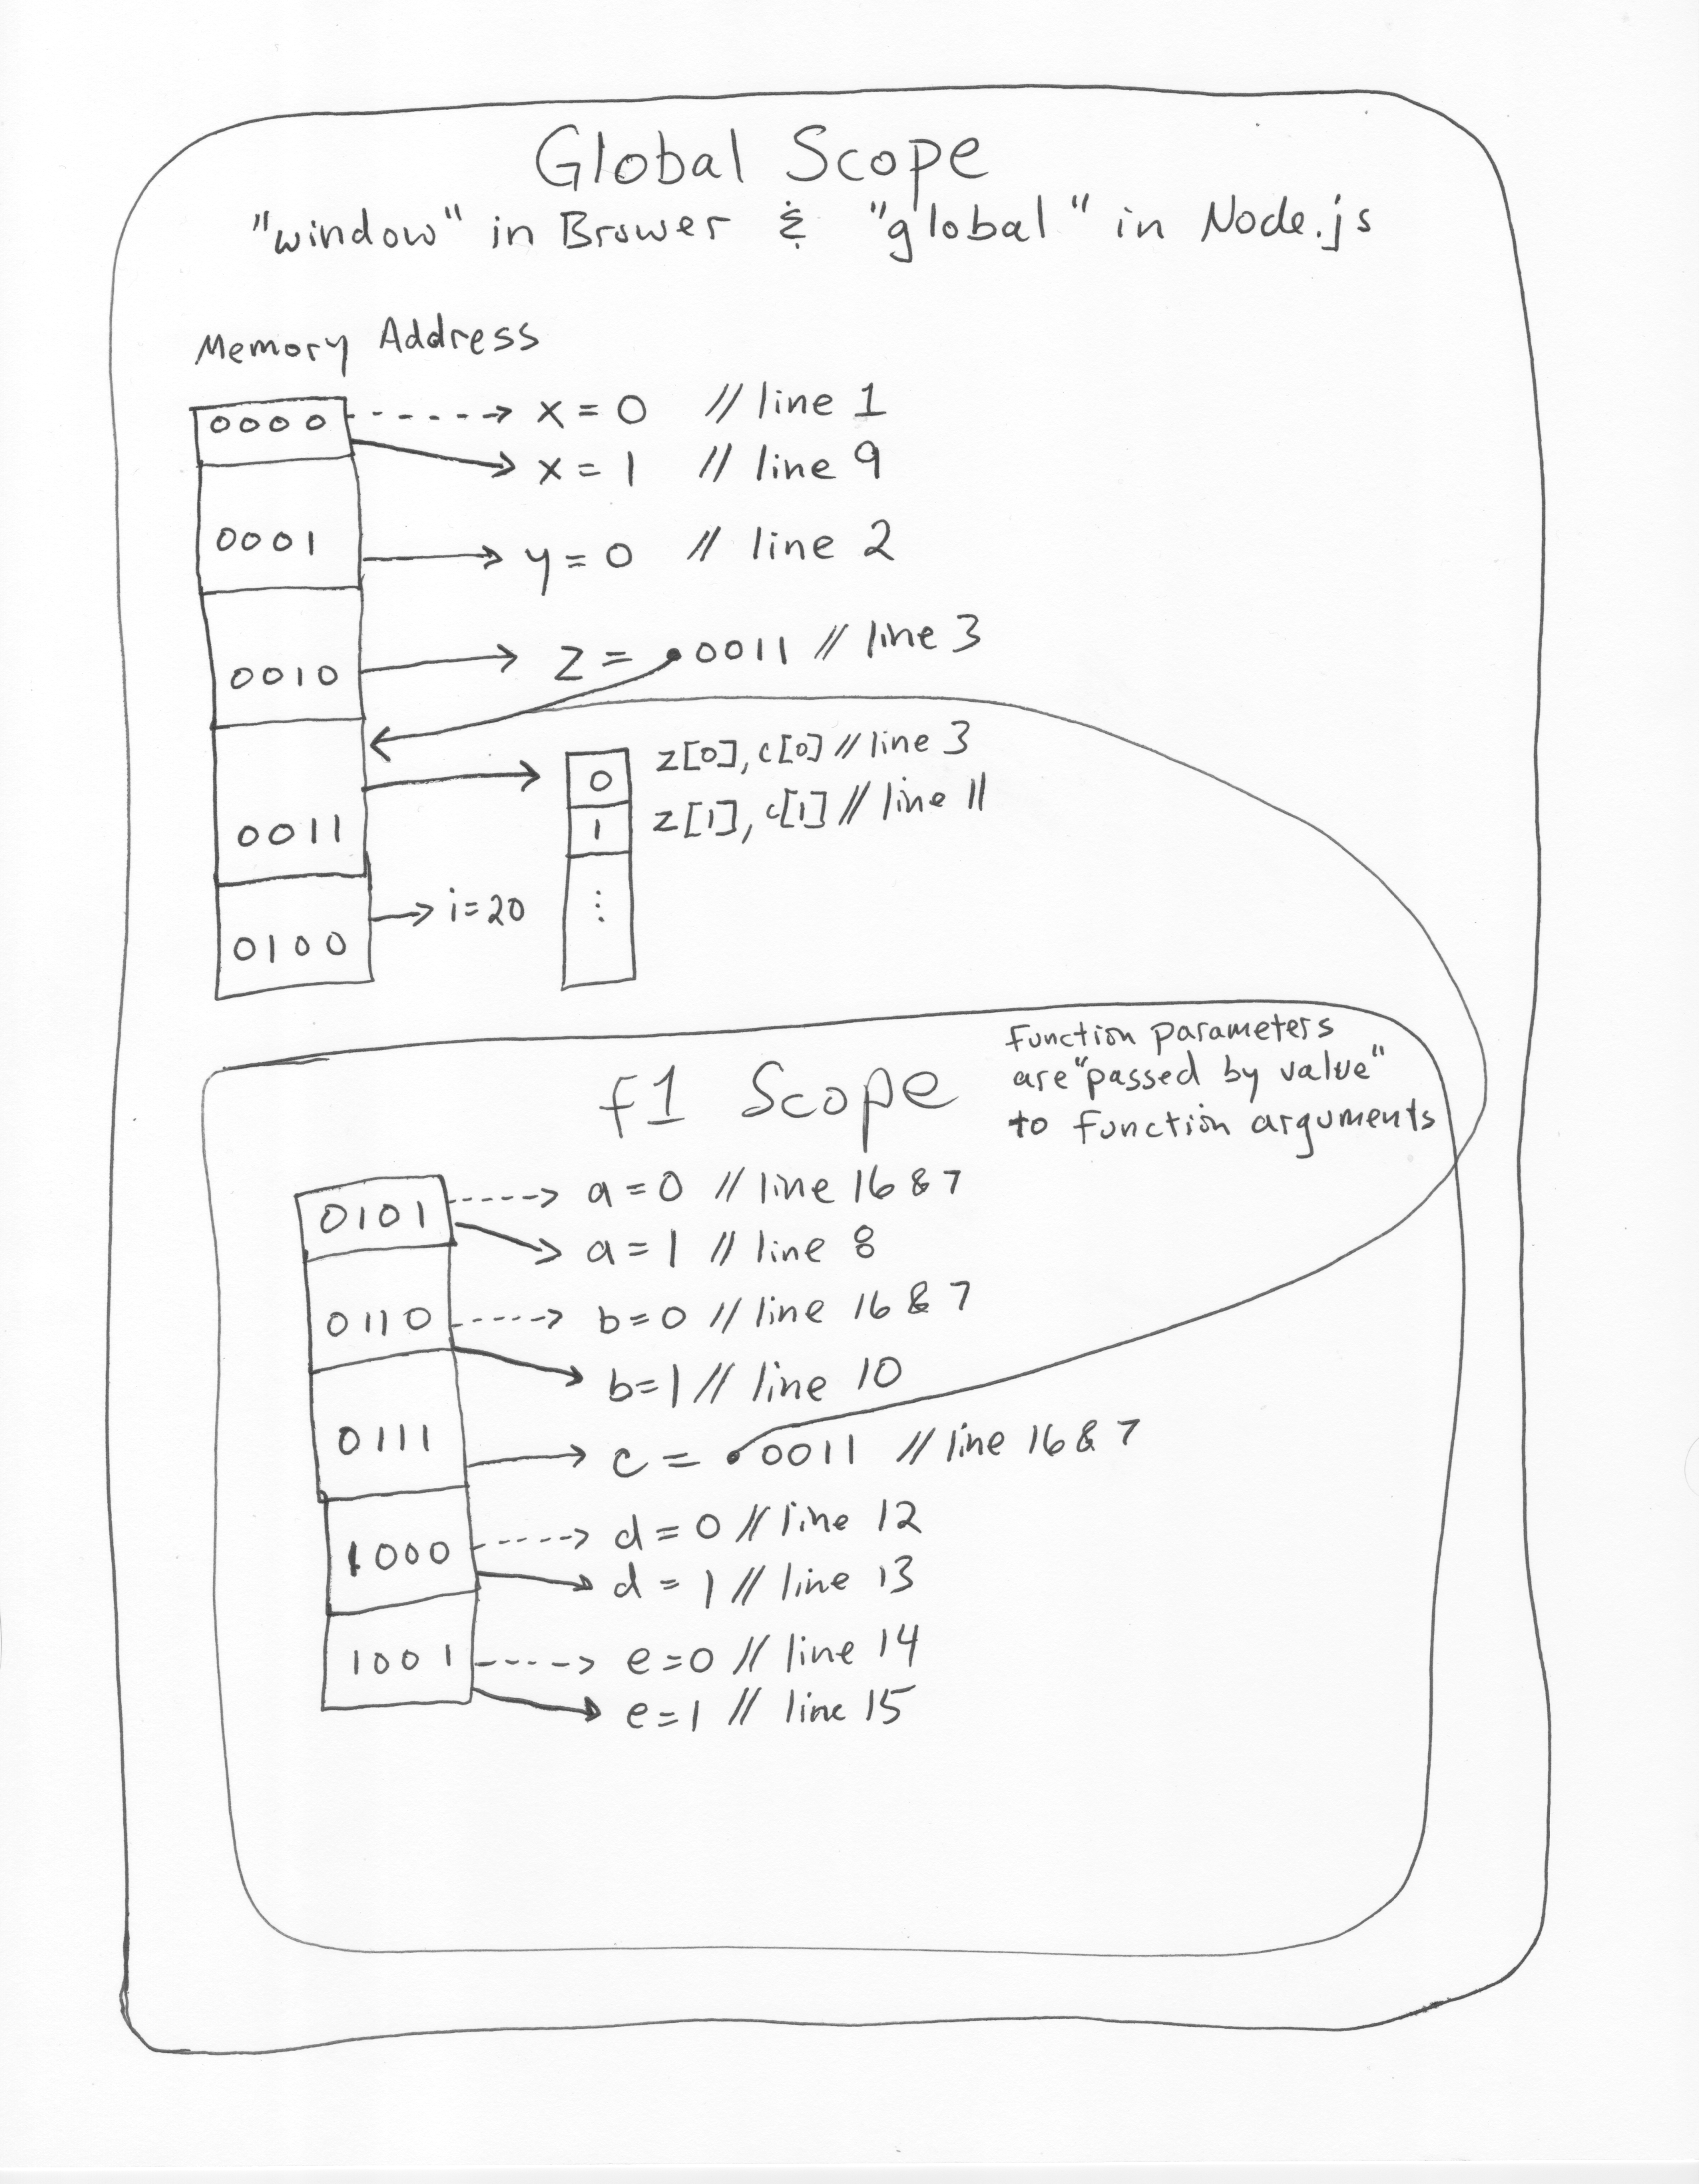 Global Scope
"window" in Brower & "global" in Node.js
Memory Address
0000 x = 0 // line 1
x = 1 // line 9
0001 y = 0 // line 2
0010 z = 0011 // line 3
0011 0 z[0], c[0] // line 3
1 z[1], c[1] // line 11
⋮
0100 i=20
Function parameters
are "passed by value"
to function arguments
f1 Scope
0101 a = 0 // line 16 & 7
a = 1 // line 8
0110 b = 0 // line 16 & 7
b=1 // line 10
0111 c = 0011 // line 16 & 7
1000 d = 0 // line 12
d = 1 // line 13
1001 e=0 // line 14
e=1 // line 15